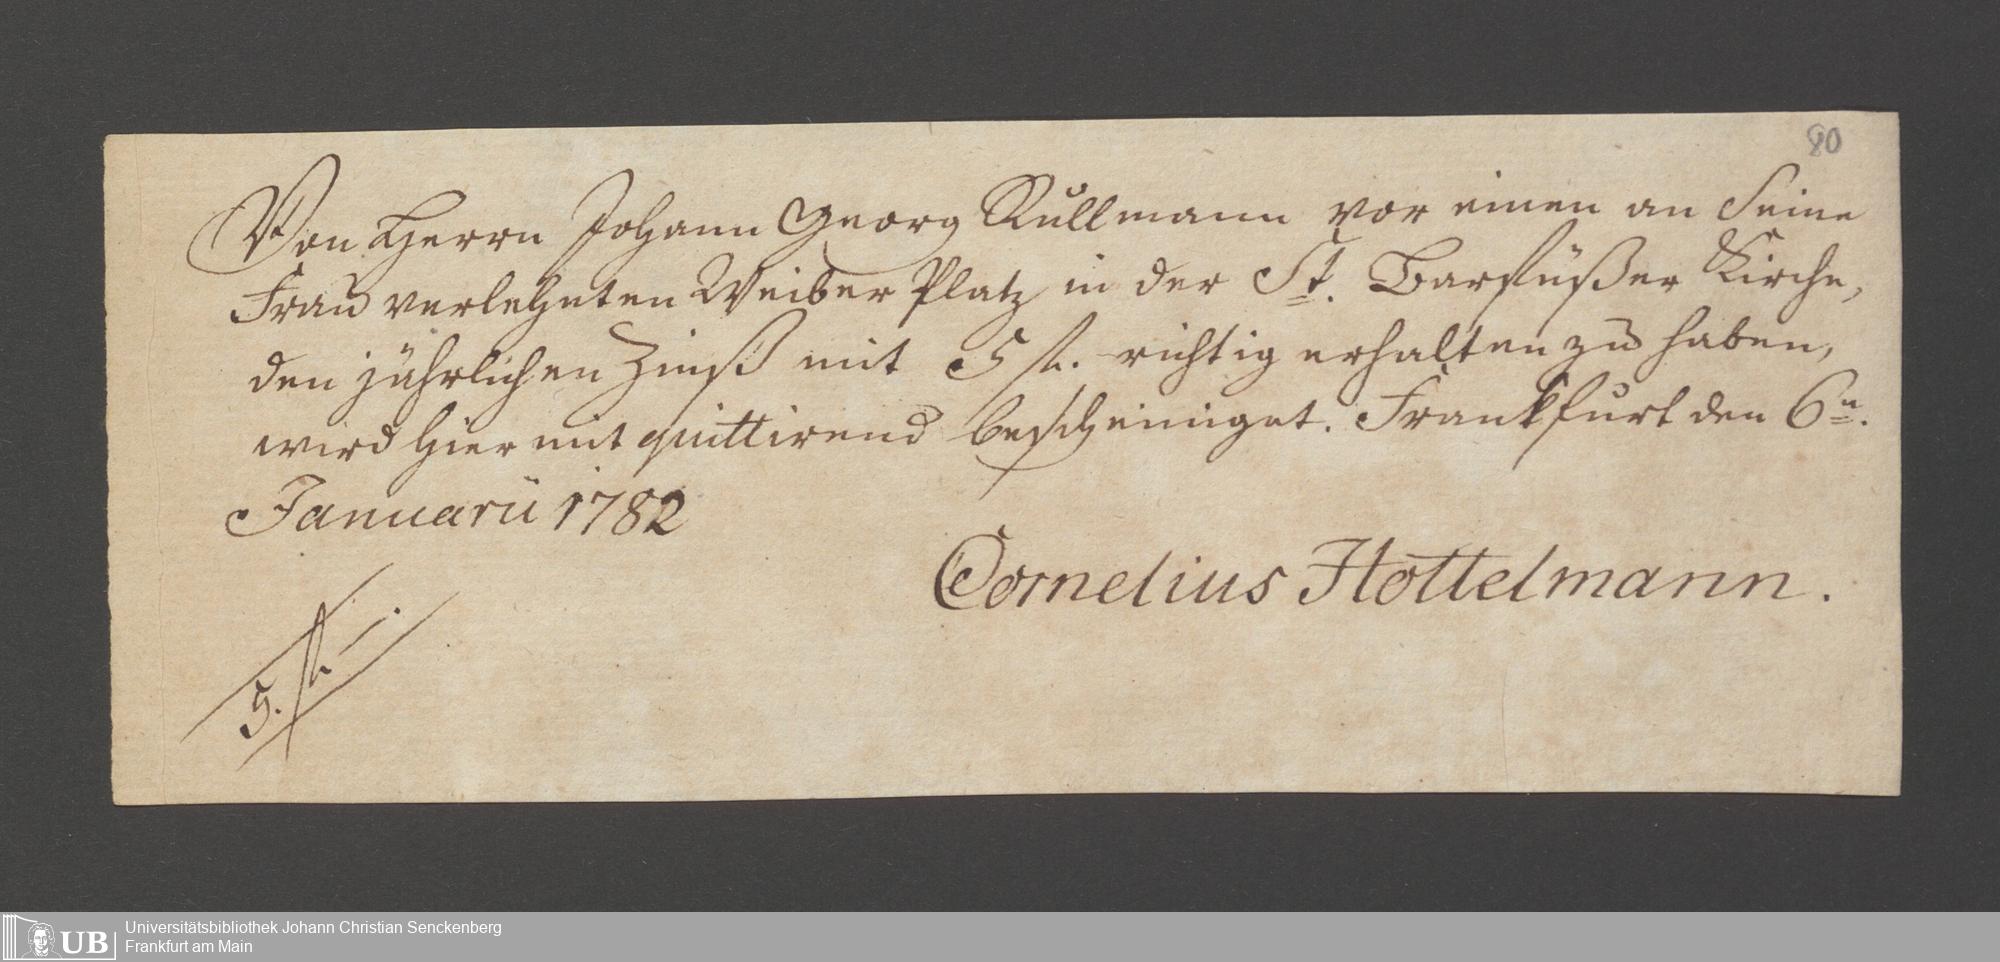 80
Von Herrn Johann Georg Kullmann vor einen an Seine
Frau verlehnten Weiber Platz in der St. Barfüßer Kirche,
den jährlichen Zinß mit 5 fl. richtig erhalten zu haben,
wird hier mit quittirend bescheiniget. Frankfurt den 6n.
Januarii 1782
Cornelius Hottelmann.
5. fl –.
UB
Universitätsbibliothek Johann Christian Senckenberg
Frankfurt am Main